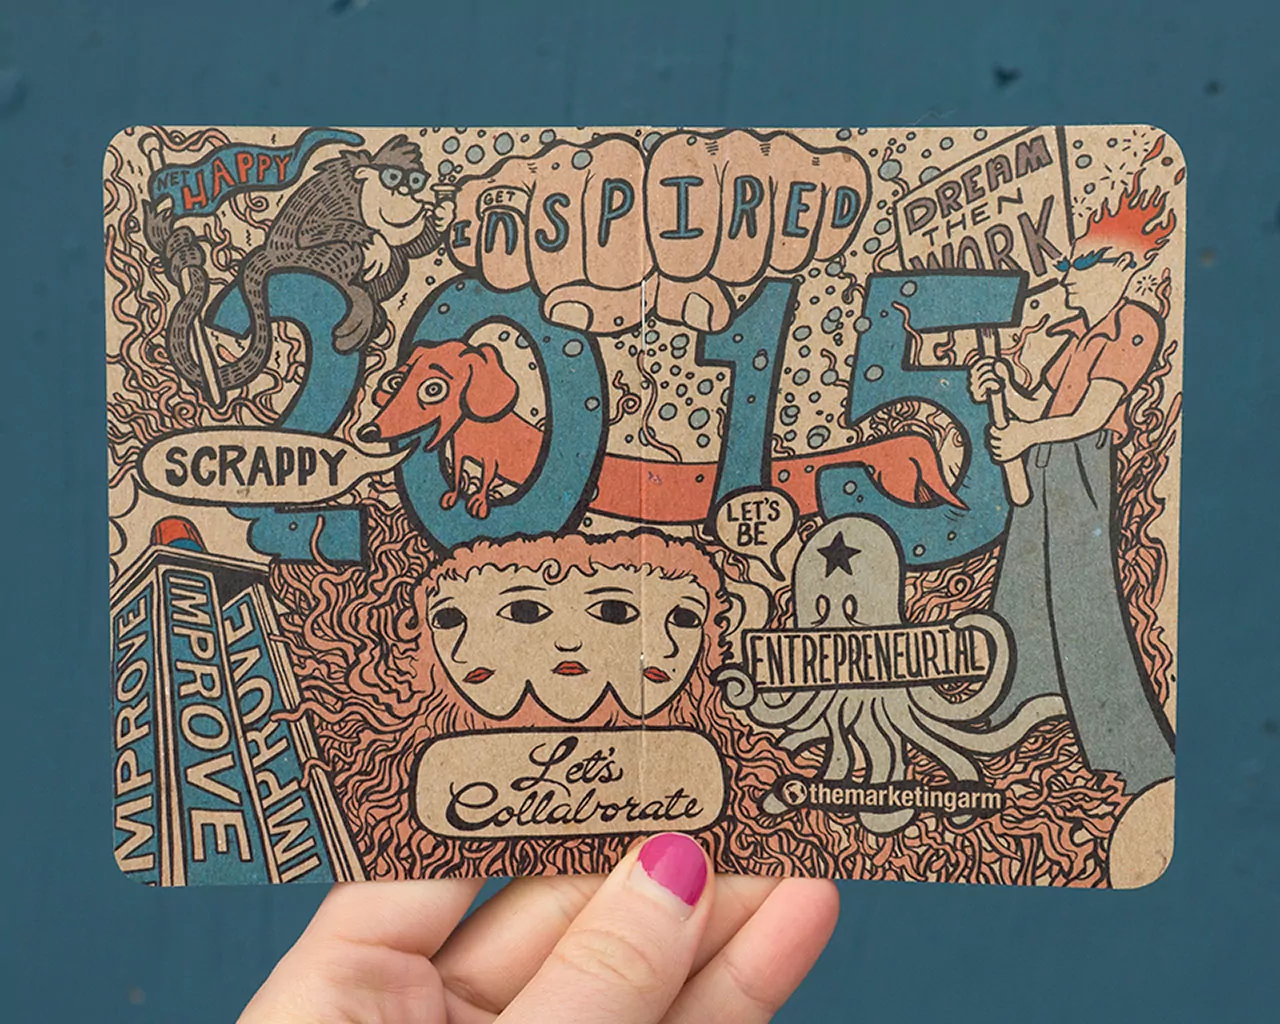 NET
HAPPY
GET
INSPIRED
DREAM
THEN
WORK
2015
SCRAPPY
LET'S
BE
ENTREPRENEURIAL
IMPROVE
IMPROVE
IMPROVE
Let's
Collaborate
themarketingarm